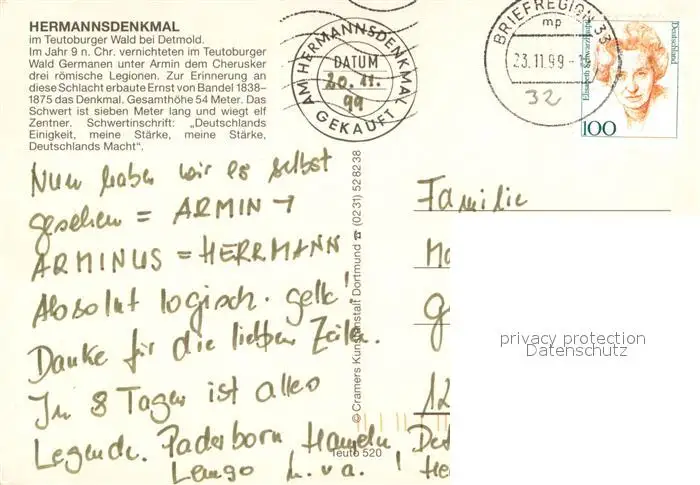 HERMANNSDENKMAL
im Teutoburger Wald bei Detmold.
Im Jahr 9 n. Chr. vernichteten im Teutoburger
Wald Germanen unter Armin dem Cherusker
drei römische Legionen. Zur Erinnerung an
diese Schlacht erbaute Ernst von Bandel 1838–
1875 das Denkmal. Gesamthöhe 54 Meter. Das
Schwert ist sieben Meter lang und wiegt elf
Zentner. Schwertinschrift: „Deutschlands
Einigkeit, meine Stärke, meine Stärke,
Deutschlands Macht“.
AM HERMANNSDENKMAL
DATUM
20.11.
99
GEKAUFT
BRIEFREGION 33
mp
23.11.99
32
Deutschland
Elisabeth Schwarzhaupt
100
Nun haben wir es selbst
gesehen = ARMIN →
ARMINUS = HERRMANN
Absolut logisch. gelle!
Danke für die lieben Zeilen.
In 8 Tagen ist alles
Legende. Paderborn Hameln
Lemgo u.v.a. !
© Cramers Kunstanstalt Dortmund ☎ (0231) 528238
Teuto 520
Familie
Mo
G
12
Det
He
privacy protection
Datenschutz